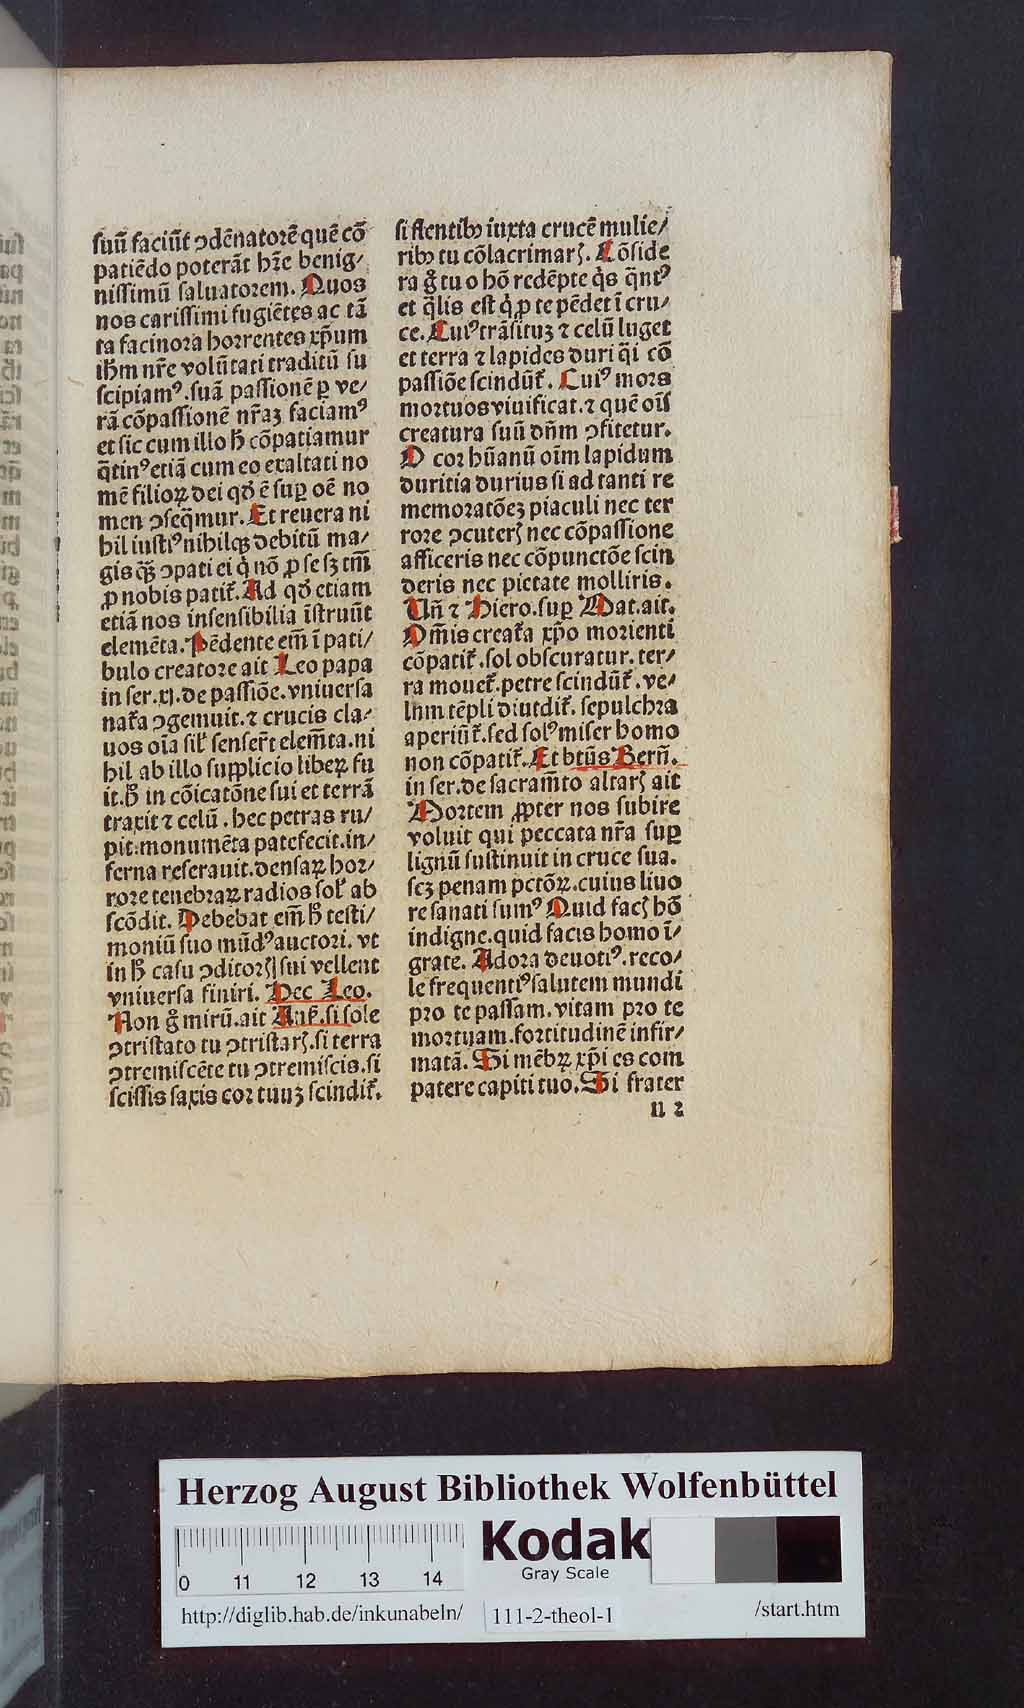 suū faciūt ꝯdēnatorē quē cō
patiēdo poterāt hr̄e benig/
nissimū saluatorem. Quos
nos carissimi fugiētes ac tā
ta facinora horrentes xp̄um
ihm̄ nr̄e volūtati traditū su
scipiamꝰ. suā passionē ꝑ ve/
rā cōpassionē nr̄aꝫ faciamꝰ
et sic cum illo h̄ cōpatiamur
q̄tinꝰ etiā cum eo exaltati no
mē filioꝝ dei qd̄ ē suꝑ oē no
men ꝯseq̄mur. Et reuera ni
hil iustiꝰ nihilqꝫ debitū ma/
gis qꝫ̄ ꝯpati ei q̇ nō ꝓ se sꝫ tm̄
ꝓ nobis patit᷑. Ad qd̄ etiam
etiā nos insensibilia īstruūt
elemēta. Pēdente em̄ ī pati/
bulo creatore ait Leo papa
in ser. xj. de passiōe. vniuersa
nat᷑a ꝯgemuit. ⁊ crucis cla/
uos oīa sil᷑ senser̄t elem̄ta. ni
hil ab illo supplicio libeꝝ fu
it. h̄ in cōicatōne sui et terrā
traxit ⁊ celū. hec petras ru/
pit. monumēta patefecit. in/
ferna reserauit. densaꝝ hor/
rore tenebraꝝ radios sol᷑ ab
scōdit. Debebat em̄ h̄ testi/
moniū suo mūdꝰ auctori. vt
in h̄ casu ꝯditorꝭ sui vellent
vniuersa finiri. Hec Leo.
Non g̊ mirū. ait Ans᷑. si sole
ꝯtristato tu ꝯtristarꝭ. si terra
ꝯtremiscēte tu ꝯtremiscis. si
scissis saxis cor tuuꝫ scindit᷑.
si flentibꝰ iuxta crucē mulie/
ribꝰ tu cōlacrimarꝭ. Cōside
ra g̊ tu o hō redēpte q̇s q̄ntꝰ
et q̄lis est q̇ ꝓ te pēdet ī cru/
ce. Cuiꝰ trāsituꝫ ⁊ celū luget
et terra ⁊ lapides duri q̄i cō
passiōe scindūt᷑. Cuiꝰ mors
mortuos viuificat. ⁊ quē oīs
creatura suū dn̄m ꝯfitetur.
O cor hūanū oīm lapidum
duritia durius si ad tanti re
memoratōeꝫ piaculi nec ter
rore ꝯcuterꝭ nec cōpassione
afficeris nec cōpunctōe scin
deris nec pietate molliris.
Un̄ ⁊ Hiero. suꝑ Mat. ait.
Om̄is creat᷑a xp̄o morienti
cōpatit᷑. sol obscuratur. ter/
ra mouet᷑. petre scindūt᷑. ve/
lum tēpli diuidit᷑. sepulchra
aperiūt᷑. sed solꝰ miser homo
non cōpatit᷑. Et btūs Bern̄.
in ser. de sacram̄to altarꝭ ait
Mortem ꝓpter nos subire
voluit qui peccata nr̄a suꝑ
lignū sustinuit in cruce sua.
scꝫ penam pctōꝝ. cuius liuo
re sanati sumꝰ Quid facꝭ hō
indigne. quid facis homo ī/
grate. Adora deuotiꝰ. reco/
le frequentiꝰ salutem mundi
pro te passam. vitam pro te
mortuam. fortitudinē infir/
matā. Si mēbꝝ xp̄i es com
patere capiti tuo. Si frater
n 2
Herzog August Bibliothek Wolfenbüttel
0 11 12 13 14
Kodak
Gray Scale
http://diglib.hab.de/inkunabeln/ 111-2-theol-1 /start.htm